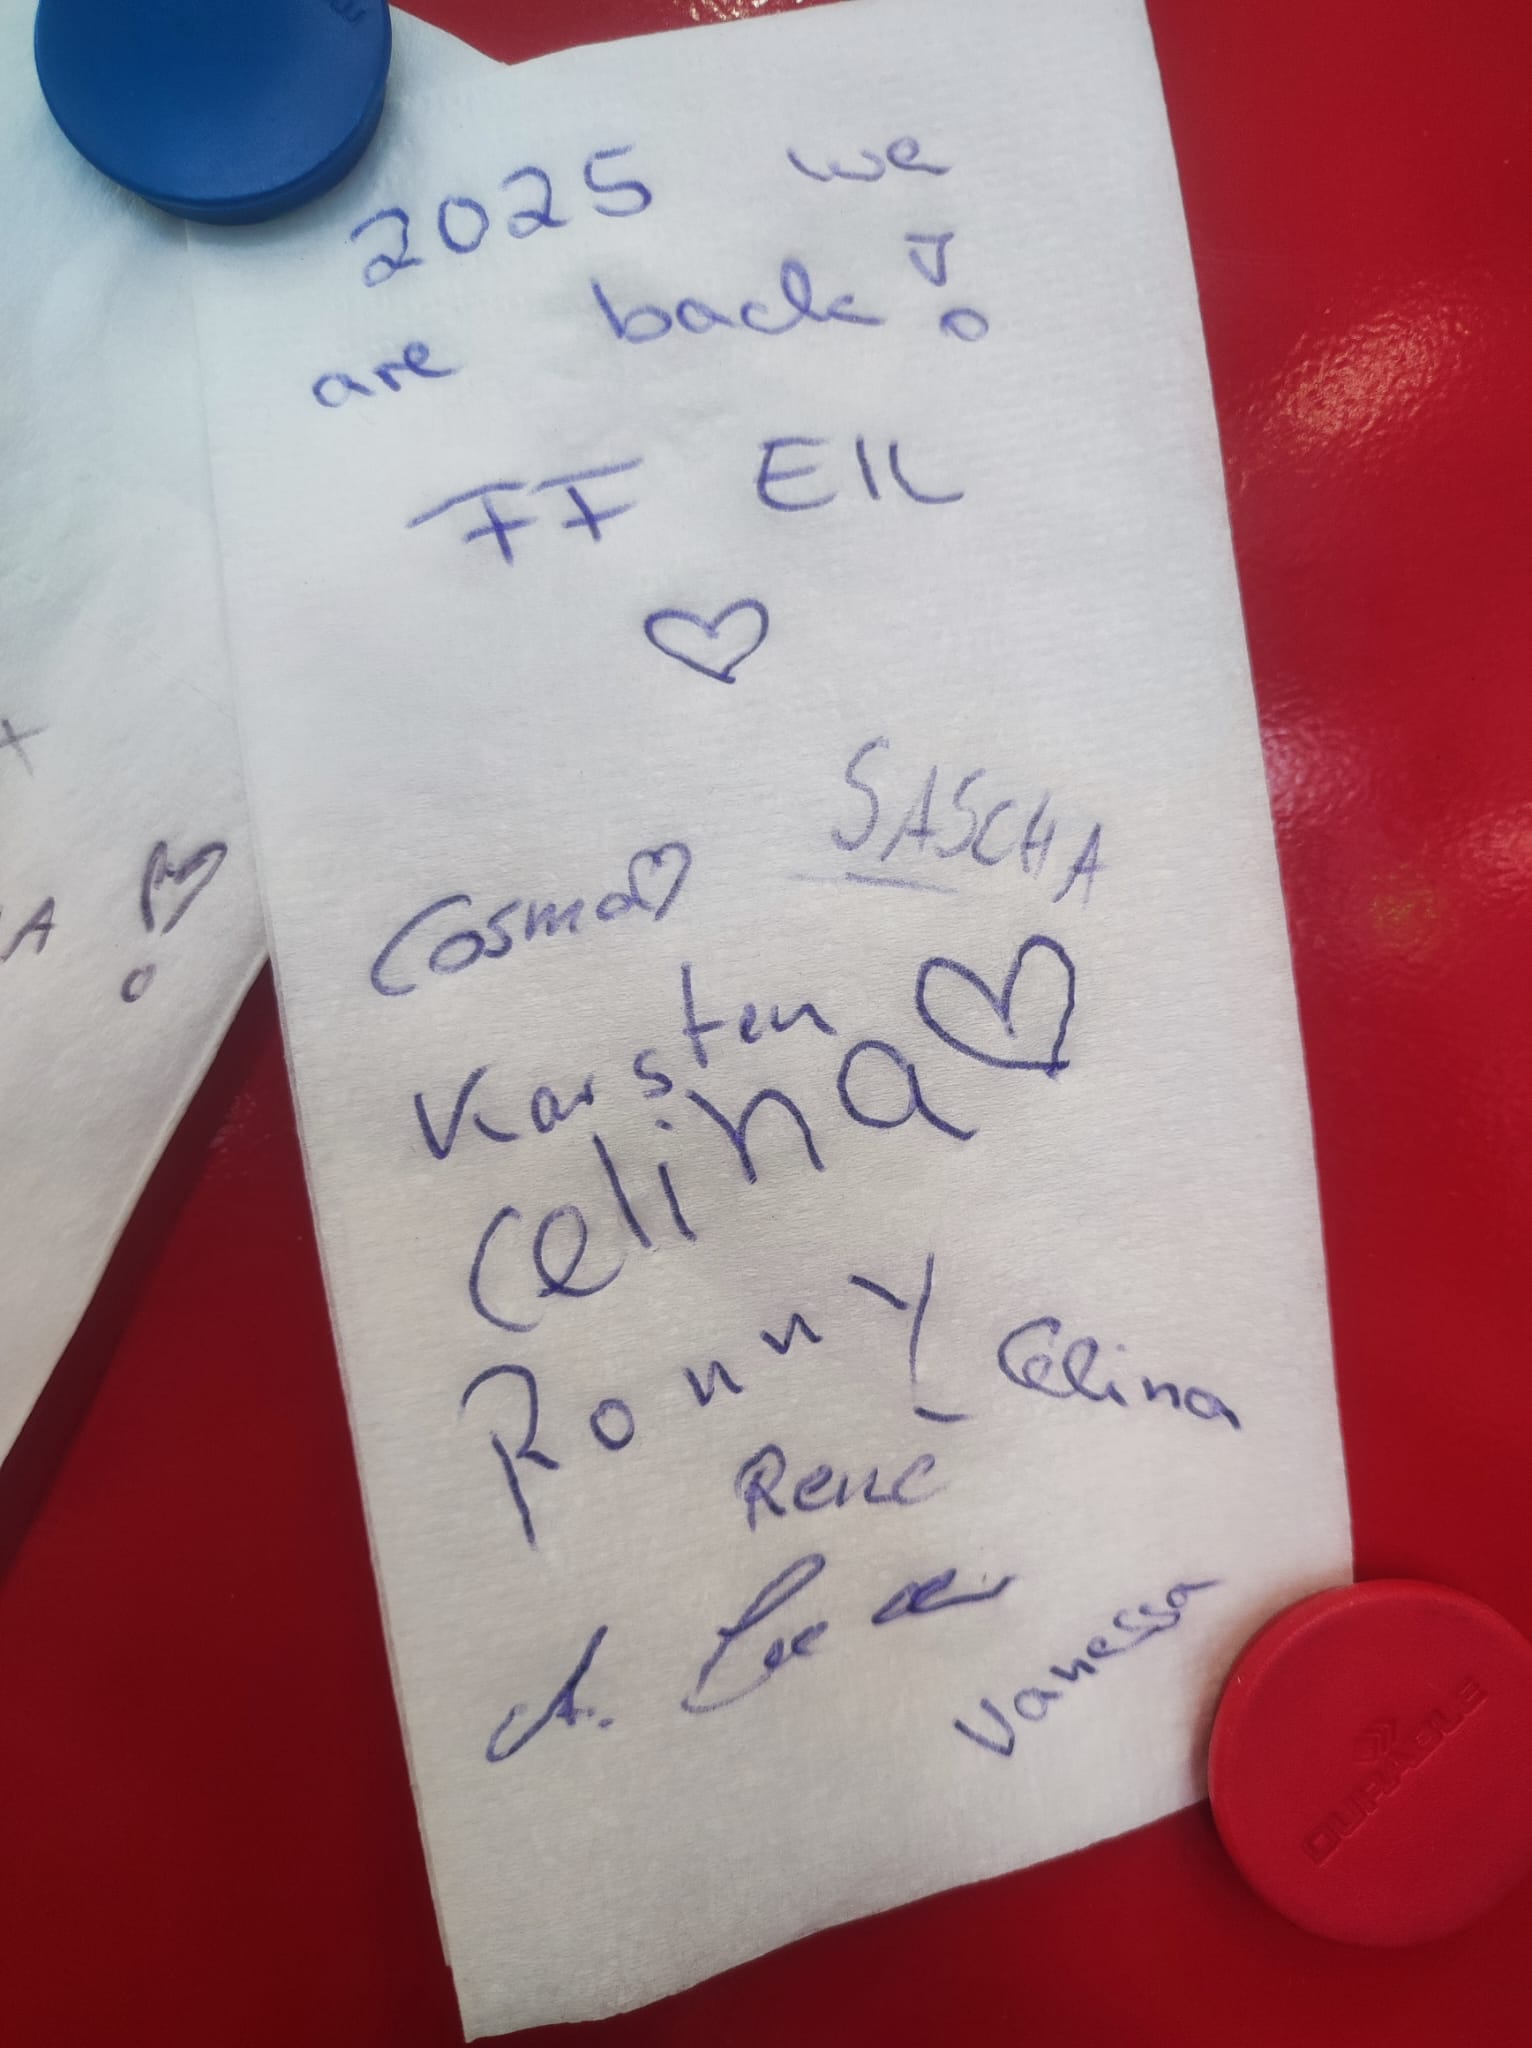 2025 we
are back!
FF EIL
SASCHA
Cosma
Karsten
Celina
Ronny
Celina
René
A.
Vanessa
DURABLE
A